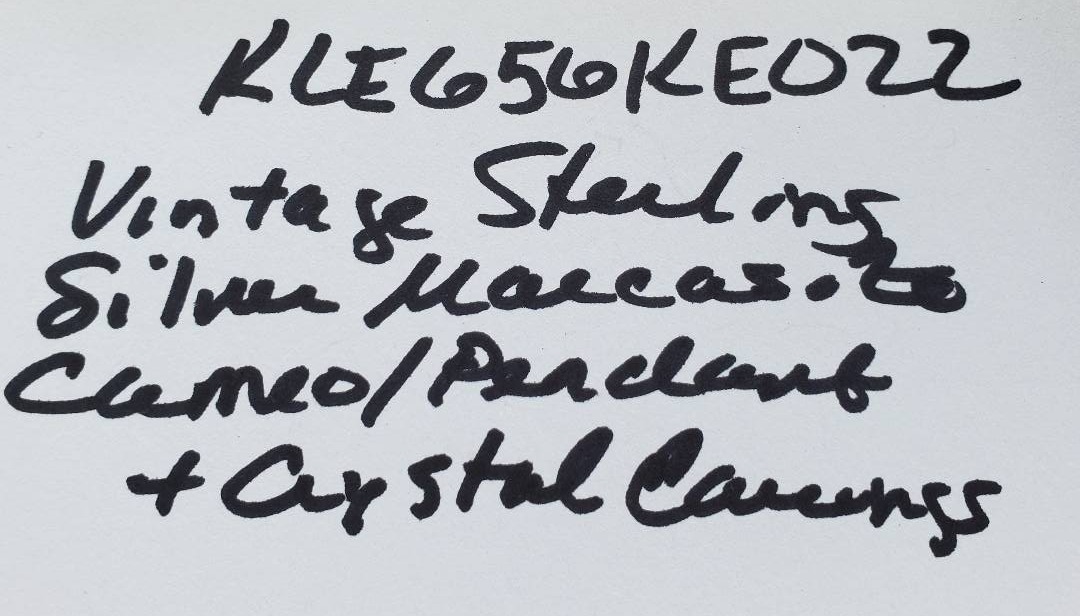 KLE656KE022
Vintage Sterling
Silver Marcasite
Cameo/Pendant
+ Crystal